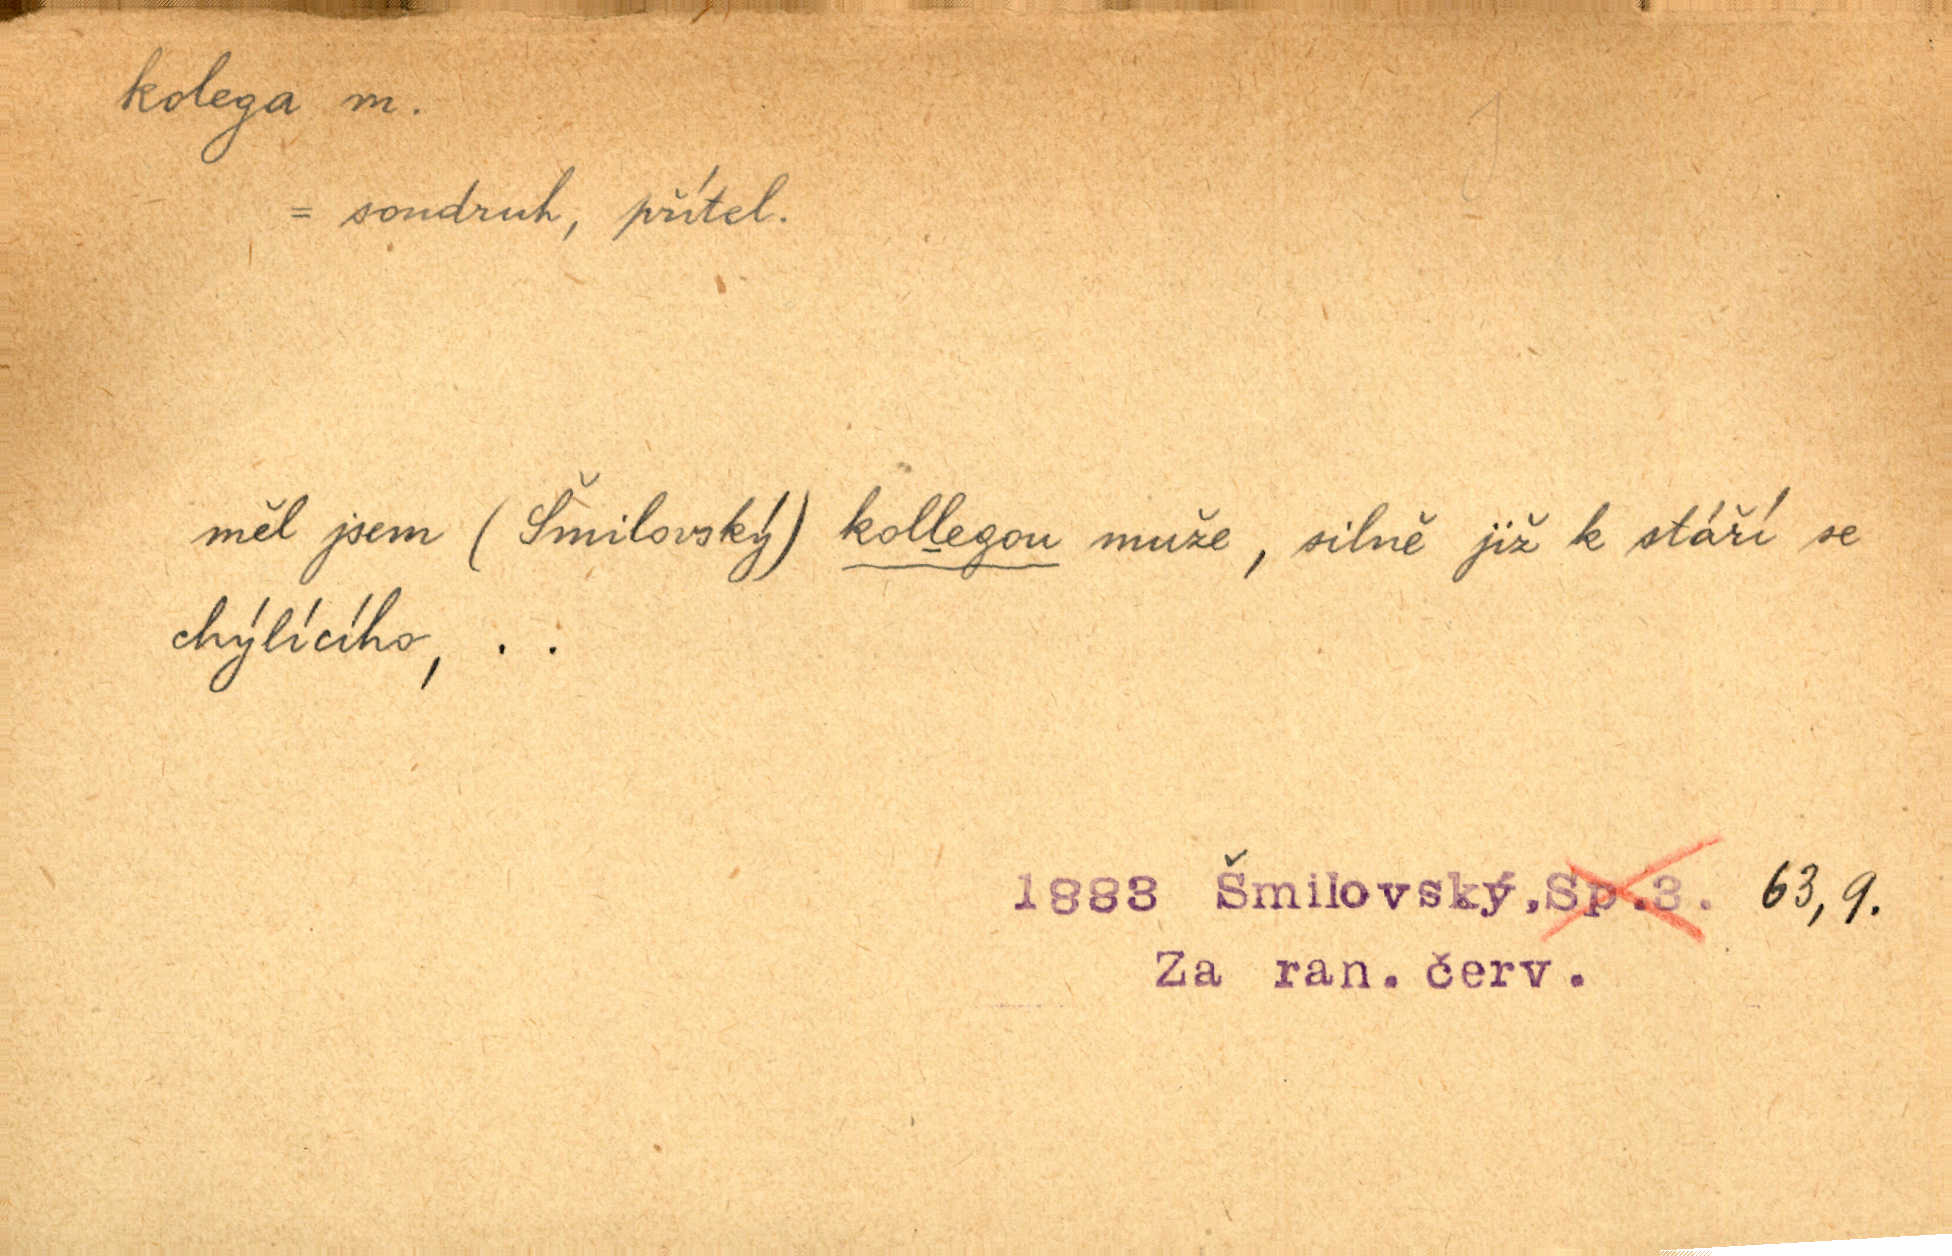 kolega m.
= soudruh, přítel.
měl jsem (Šmilovský) kollegou muže, silně již k stáří se
chýlícího, . .
1883 Šmilovský, Sp.3. 63, 9.
Za ran. červ.